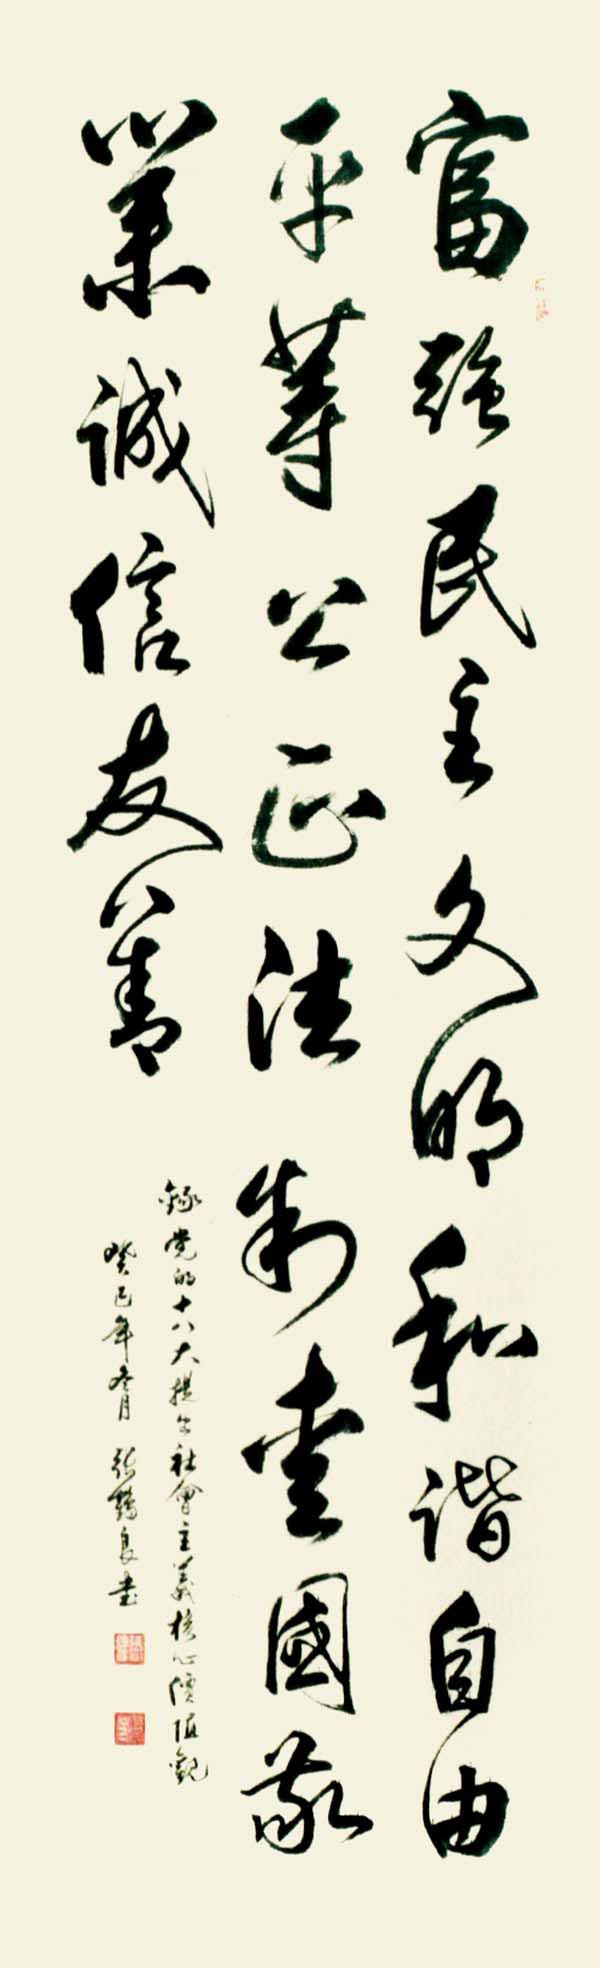 富強民主文明和諧自由
平等公正法制愛國敬
業誠信友善
錄党的十八大提出社會主義核心價值觀
癸巳年冬月 張鶴良書